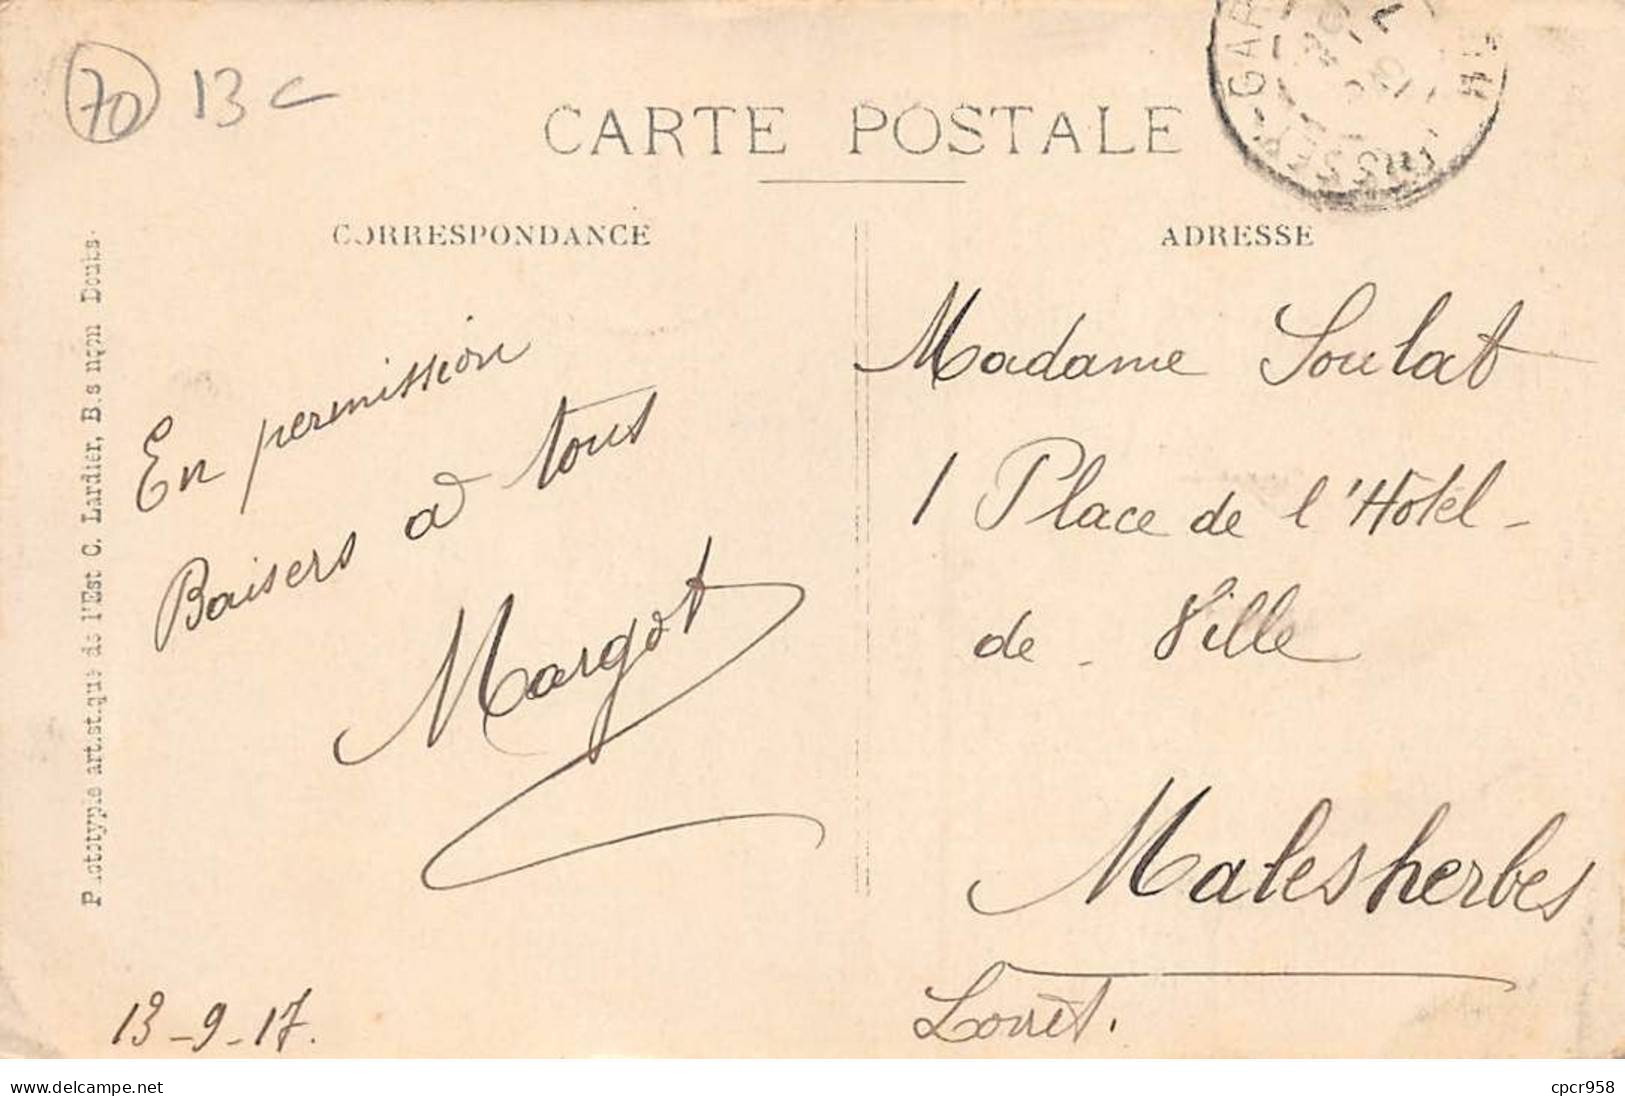 70 13 c
CARTE POSTALE
CORRESPONDANCE
ADRESSE
Phototypie artistique de l'Est C. Lardier, Besançon Doubs.
En permission
Baisers à tous
Margot
13-9-17.
Madame Soulat
1 Place de l'Hôtel-
de-Ville
Malesherbes
Loiret.
delcampe.net
cpcr958